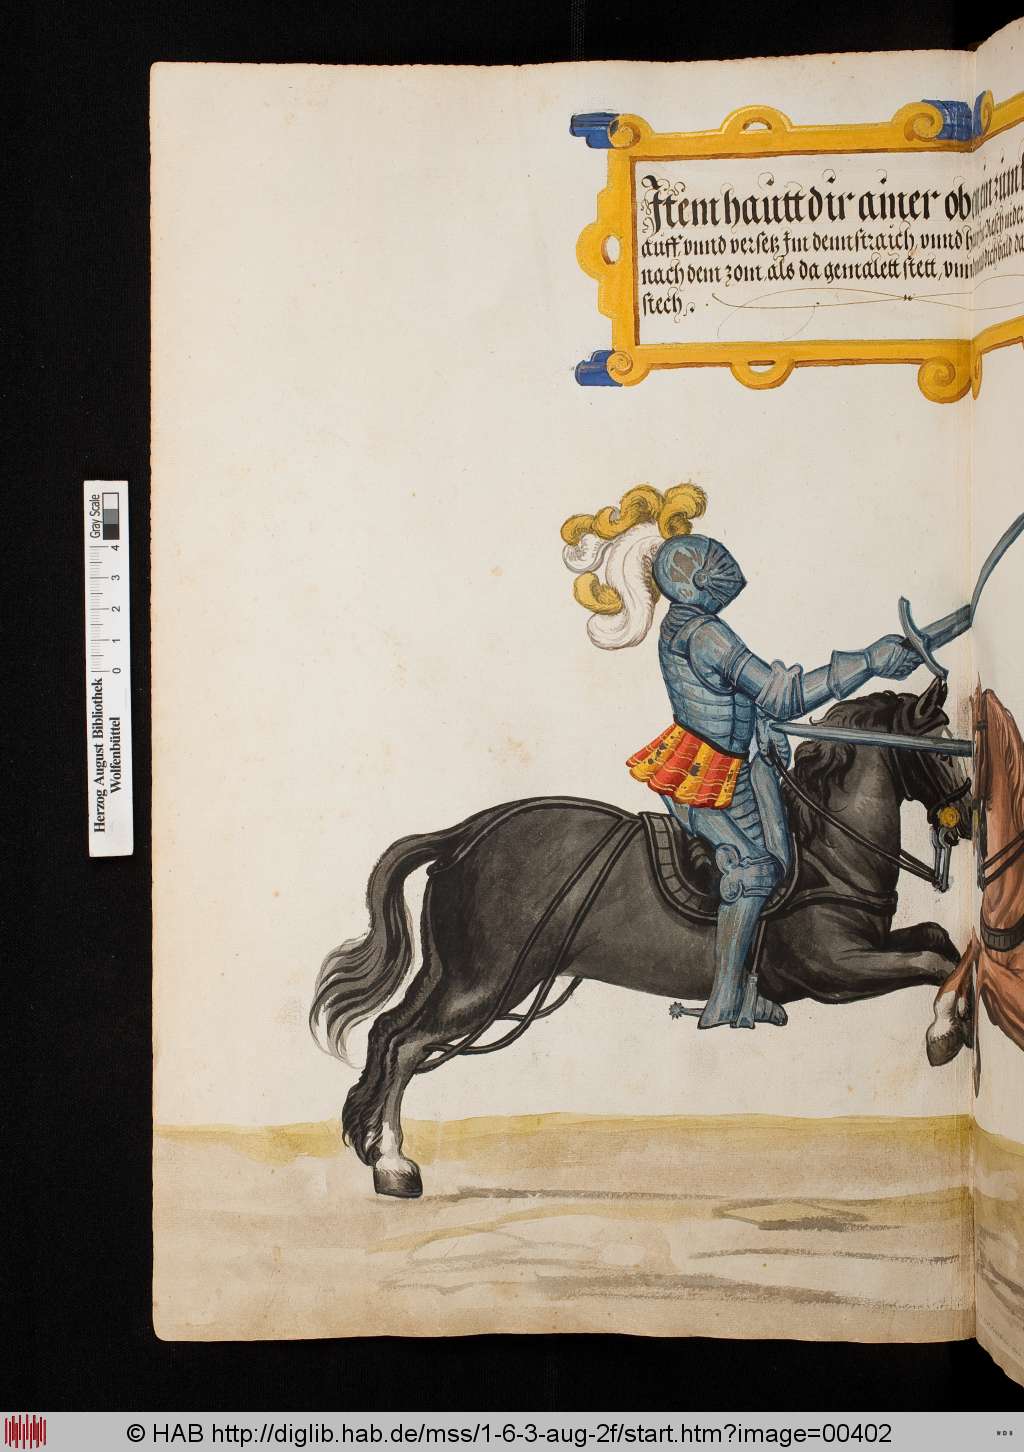 Item hautt dir ainer oben ein zum
auff, vnnd versetz Im denn straich, vnnd
nach dem zom, als da gemalett stett, vnnd
stech.
Gray Scale
0 1 2 3 4
Herzog August Bibliothek
Wolfenbüttel
© HAB http://diglib.hab.de/mss/1-6-3-aug-2f/start.htm?image=00402